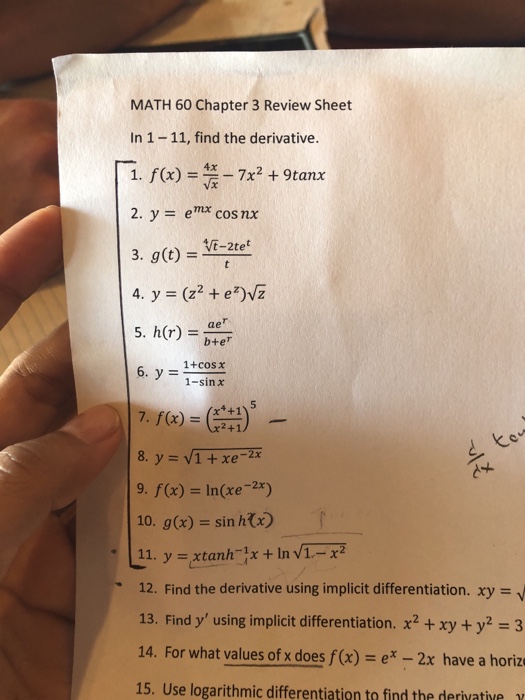 MATH 60 Chapter 3 Review Sheet
In 1 – 11, find the derivative.
1. f(x) = 4x/√x − 7x² + 9tanx
2. y = eᵐˣ cos nx
3. g(t) = (∜t−2teᵗ)/t
4. y = (z² + eᶻ)√z
5. h(r) = aeʳ/(b+eʳ)
6. y = (1+cos x)/(1−sin x)
7. f(x) = ((x⁴+1)/(x²+1))⁵ –
8. y = √(1 + xe⁻²ˣ)
d/dx
9. f(x) = ln(xe⁻²ˣ)
10. g(x) = sin h²(x)
11. y = xtanh⁻¹x + ln √(1 − x²)
12. Find the derivative using implicit differentiation. xy = √
13. Find y′ using implicit differentiation. x² + xy + y² = 3
14. For what values of x does f(x) = eˣ − 2x have a horiz
15. Use logarithmic differentiation to find the derivative